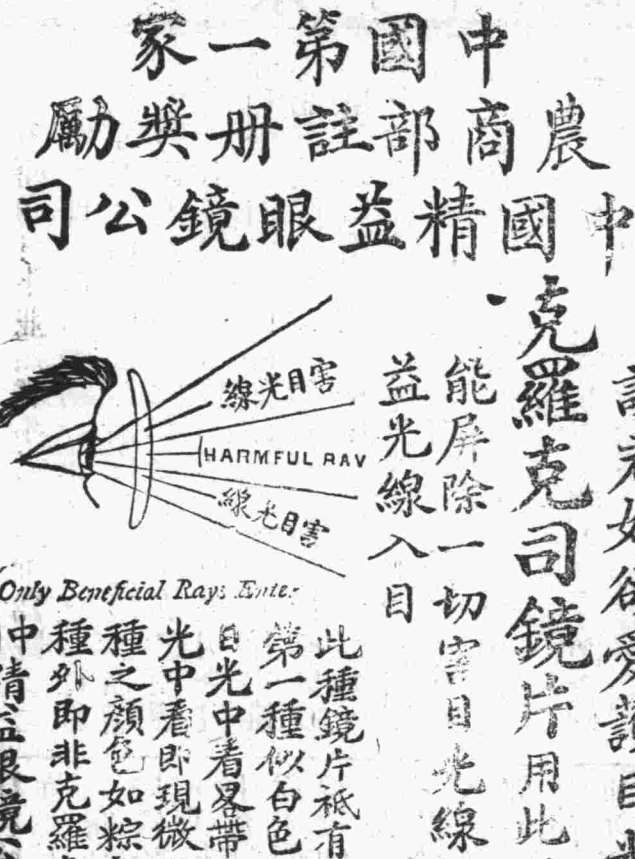 中國第一家
農商部註册獎勵
中國精益眼鏡公司
克羅克司鏡片用此
能屏除一切害目光線
益光線入目
害目光線
HARMFUL RAY
害目光線
Only Beneficial Rays Enter
此種鏡片祗有
第一種似白色
日光中看畧帶
光中看即現微
種之顏色如粽
種外即非克羅
中精益眼鏡公